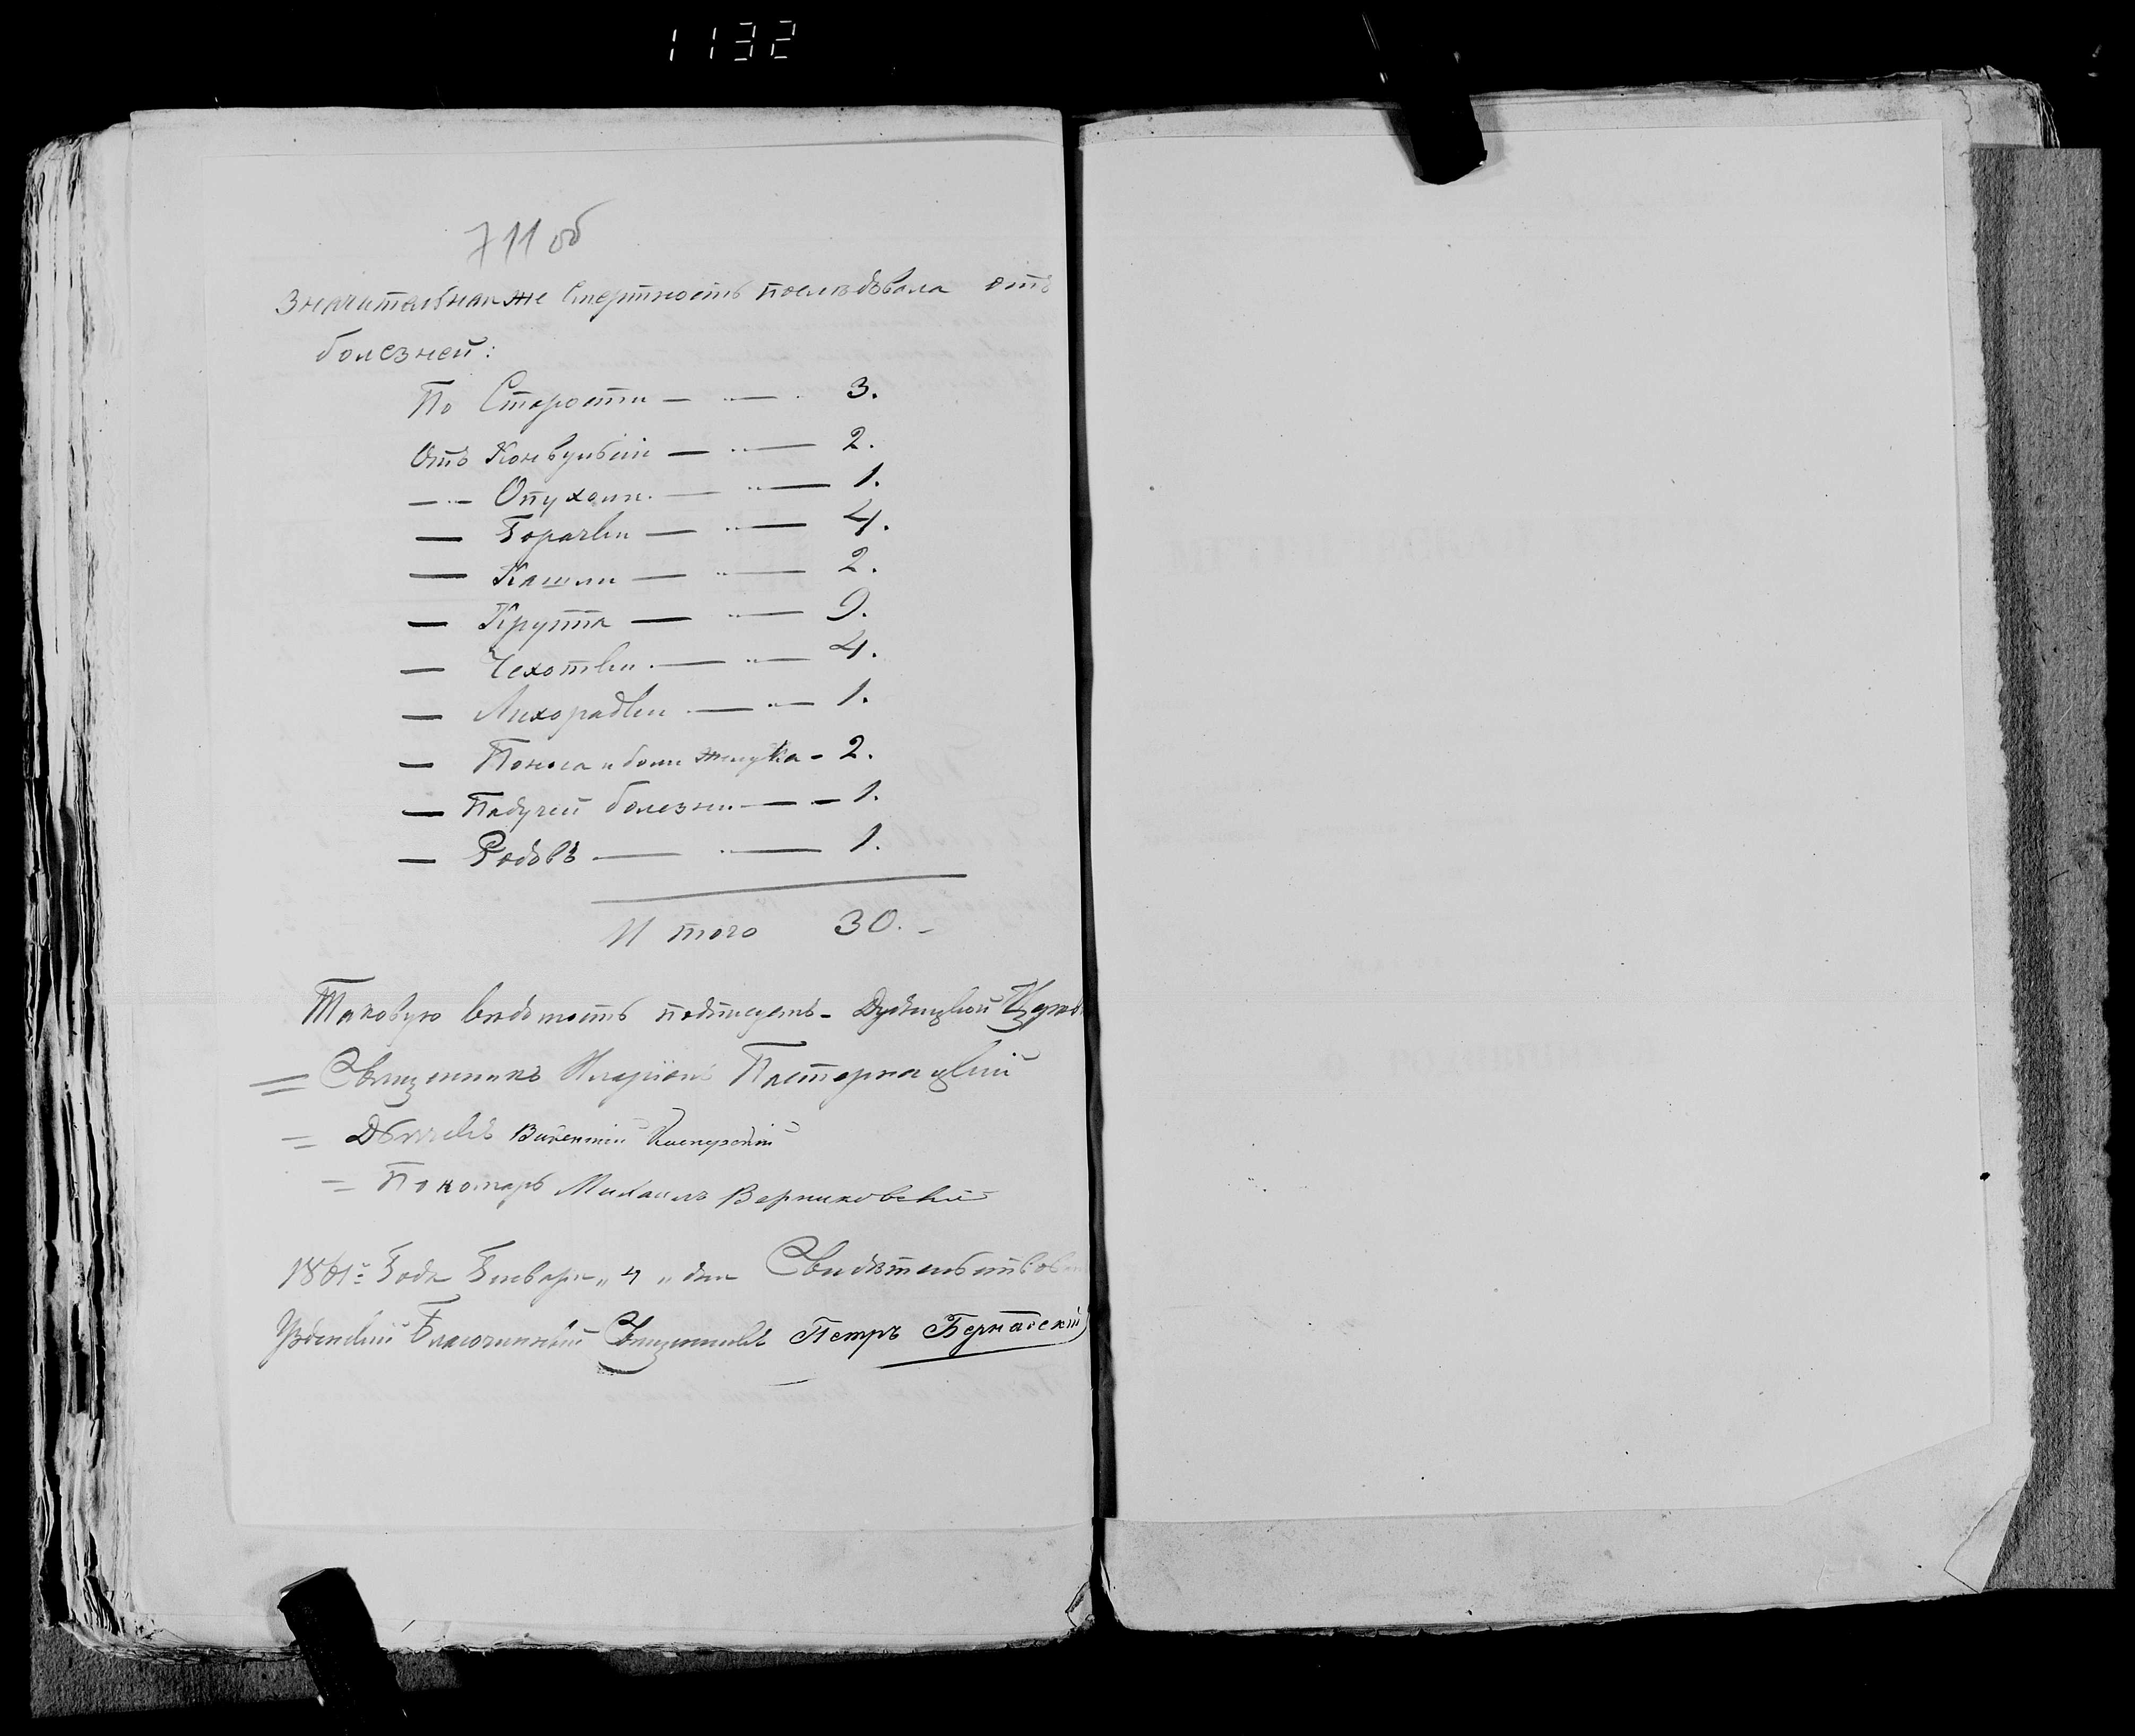 1132
711 об
Значительная же Смертность последовала отъ
болезней:
По Старости — „ — 3.
Отъ Конвульсіи — „ — 2.
— „ — Опухоли. — „ — 1.
— Горячки — „ — 4.
— Кашли — „ — 2.
— Круппа — „ — 9.
— Чехотки. — „ — 4.
— Лихорадки — „ — 1.
— Поноса и боли желудка - 2.
— Падучей болезни — — 1.
— Родовъ — „ — 1.
И того 30. -
Таковую ведомость подписуемъ - Церкв
= Священникъ Иларіонъ Пастернацкій
= Дьячекъ Викентій
= Пономарь Михаилъ Верниковскій
1861го Года Генваря „ 4 „ дня Свидетельствовал
Узденскій Благочинный Священникъ Петръ Бернадскій